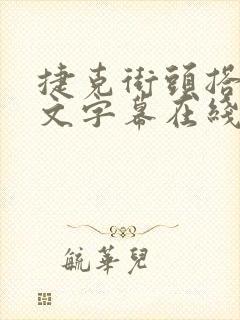 捷克街頭搭
文字幕在綫
毓華兒